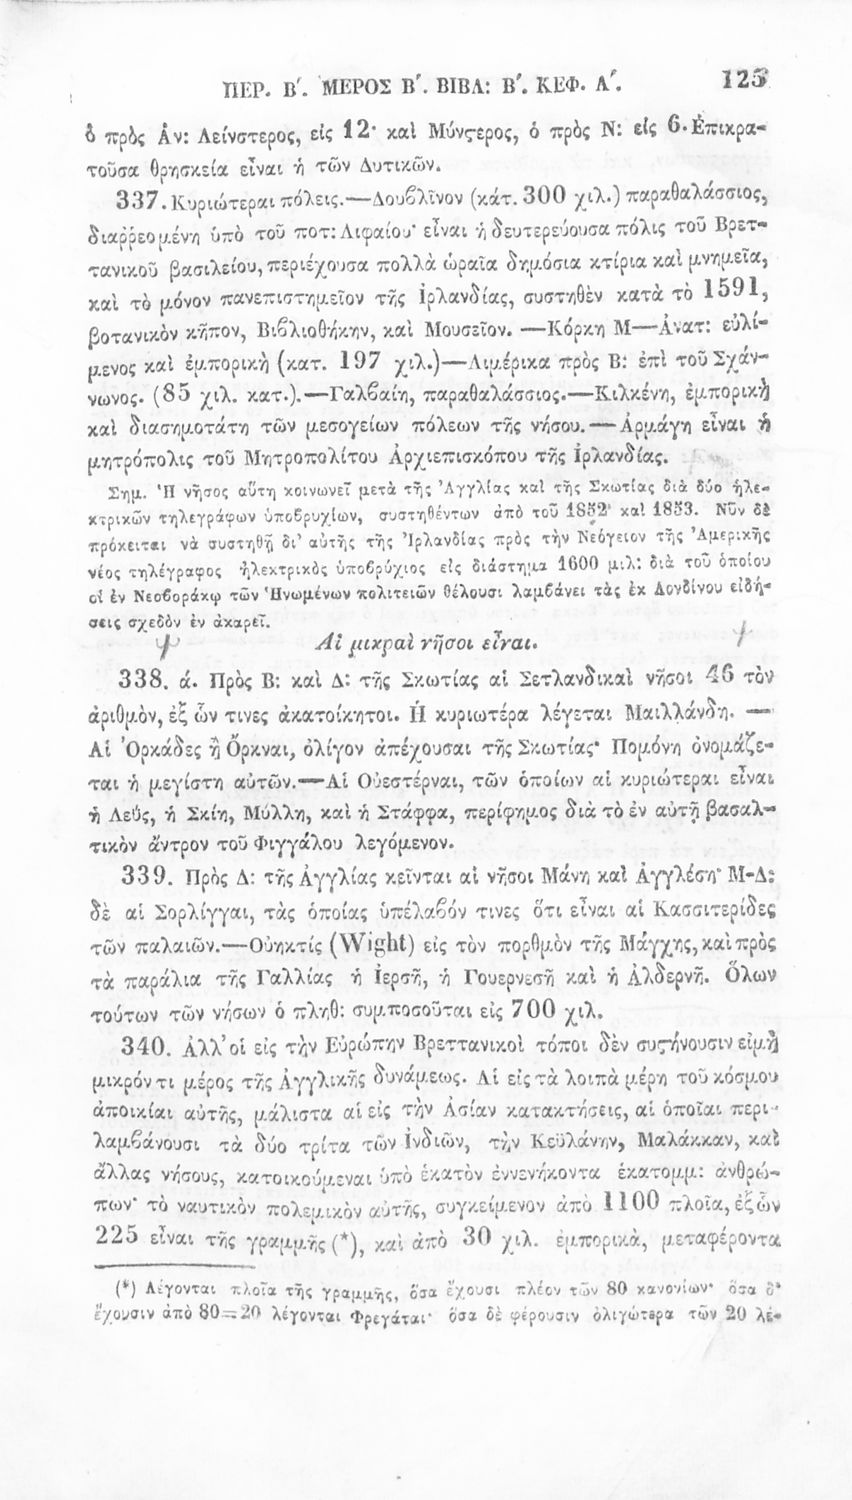 ΠΕΡ. Β΄. ΜΕΡΟΣ Β΄. ΒΙΒΛ: Β΄. ΚΕΦ. Α΄. 125
ὁ πρὸς Ἀν: Λείνστερος, εἰς 12· καὶ Μύνςερος, ὁ πρὸς Ν: εἰς 6· Ἐπικρα-
τοῦσα θρησκεία εἶναι ἡ τῶν Δυτικῶν.
337. Κυριώτεραι πόλεις.—Δουβλῖνον (κάτ. 300 χιλ.) παραθαλάσσιος,
διαῤῥεομένη ὑπὸ τοῦ ποτ: Λιφαίου· εἶναι ἡ δευτερεύουσα πόλις τοῦ Βρετ-
τανικοῦ βασιλείου, περιέχουσα πολλὰ ὡραῖα δημόσια κτίρια καὶ μνημεῖα,
καὶ τὸ μόνον πανεπιστημεῖον τῆς Ἰρλανδίας, συστηθὲν κατὰ τὸ 1591,
βοτανικὸν κῆπον, Βιβλιοθήκην, καὶ Μουσεῖον. —Κόρκη Μ—Ἀνατ: εὐλί-
μενος καὶ ἐμπορικὴ (κατ. 197 χιλ.)—Λιμέρικα πρὸς Β: ἐπὶ τοῦ Σχάν-
νωνος. (85 χιλ. κατ.).—Γαλβαίη, παραθαλάσσιος.—Κιλκένη, ἐμπορικὴ
καὶ διασημοτάτη τῶν μεσογείων πόλεων τῆς νήσου.—Ἀρμάγη εἶναι ἡ
μητρόπολις τοῦ Μητροπολίτου Ἀρχιεπισκόπου τῆς Ἰρλανδίας.
Σημ. Ἡ νῆσος αὕτη κοινωνεῖ μετὰ τῆς Ἀγγλίας καὶ τῆς Σκωτίας διὰ δύο ἠλε-
κτρικῶν τηλεγράφων ὑποβρυχίων, συστηθέντων ἀπὸ τοῦ 1852 καὶ 1853. Νῦν δὲ
πρόκειται νὰ συστηθῇ δι' αὐτῆς τῆς Ἰρλανδίας πρὸς τὴν Νεόγειον τῆς Ἀμερικῆς
νέος τηλέγραφος ἠλεκτρικὸς ὑποβρύχιος εἰς διάστημα 1600 μιλ: διὰ τοῦ ὁποίου
οἱ ἐν Νεοβοράκῳ τῶν Ἡνωμένων πολιτειῶν θέλουσι λαμβάνει τὰς ἐκ Λονδίνου εἰδή-
σεις σχεδὸν ἐν ἀκαρεῖ.
Αἱ μικραὶ νῆσοι εἶναι.
338. ά. Πρὸς Β: καὶ Δ: τῆς Σκωτίας αἱ Σετλανδικαὶ νῆσοι 46 τὸν
ἀριθμὸν, ἐξ ὧν τινες ἀκατοίκητοι. Ἡ κυριωτέρα λέγεται Μαιλλάνδη. —
Αἱ Ὀρκάδες ἢ Ὄρκναι, ὀλίγον ἀπέχουσαι τῆς Σκωτίας· Πομόνη ὀνομάζε-
ται ἡ μεγίστη αὐτῶν.—Αἱ Οὐεστέρναι, τῶν ὁποίων αἱ κυριώτεραι εἶναι
ἡ Λεΰς, ἡ Σκίη, Μύλλη, καὶ ἡ Στάφφα, περίφημος διὰ τὸ ἐν αὐτῇ βασαλ-
τικὸν ἄντρον τοῦ Φιγγάλου λεγόμενον.
339. Πρὸς Δ: τῆς Ἀγγλίας κεῖνται αἱ νῆσοι Μάνη καὶ Ἀγγλέση· Μ-Δ:
δὲ αἱ Σορλίγγαι, τὰς ὁποίας ὑπέλαβόν τινες ὅτι εἶναι αἱ Κασσιτερίδες
τῶν παλαιῶν.—Οὐηκτίς (Wight) εἰς τὸν πορθμὸν τῆς Μάγχης, καὶ πρὸς
τὰ παράλια τῆς Γαλλίας ἡ Ἰερσῆ, ἡ Γουερνεσῆ καὶ ἡ Ἀλδερνῆ. Ὅλων
τούτων τῶν νήσων ὁ πληθ: συμποσοῦται εἰς 700 χιλ.
340. Ἀλλ' οἱ εἰς τὴν Εὐρώπην Βρεττανικοὶ τόποι δὲν συςήνουσιν εἰμὴ
μικρόν τι μέρος τῆς Ἀγγλικῆς δυνάμεως. Αἱ εἰς τὰ λοιπὰ μέρη τοῦ κόσμου
ἀποικίαι αὐτῆς, μάλιστα αἱ εἰς τὴν Ἀσίαν κατακτήσεις, αἱ ὁποῖαι περι-
λαμβάνουσι τὰ δύο τρίτα τῶν Ἰνδιῶν, τὴν Κεϋλάνην, Μαλάκκαν, καὶ
ἄλλας νήσους, κατοικούμεναι ὑπὸ ἑκατὸν ἐννενήκοντα ἑκατομμ: ἀνθρώ-
πων· τὸ ναυτικὸν πολεμικὸν αὐτῆς, συγκείμενον ἀπὸ 1100 πλοῖα, ἐξ ὧν
225 εἶναι τῆς γραμμῆς (*), καὶ ἀπὸ 30 χιλ. ἐμπορικὰ, μεταφέροντα
(*) Λέγονται πλοῖα τῆς γραμμῆς, ὅσα ἔχουσι πλέον τῶν 80 κανονίων· ὅσα δ'
ἔχουσιν ἀπὸ 80=20 λέγονται Φρεγάται· ὅσα δὲ φέρουσιν ὀλιγώτερα τῶν 20 λέ-